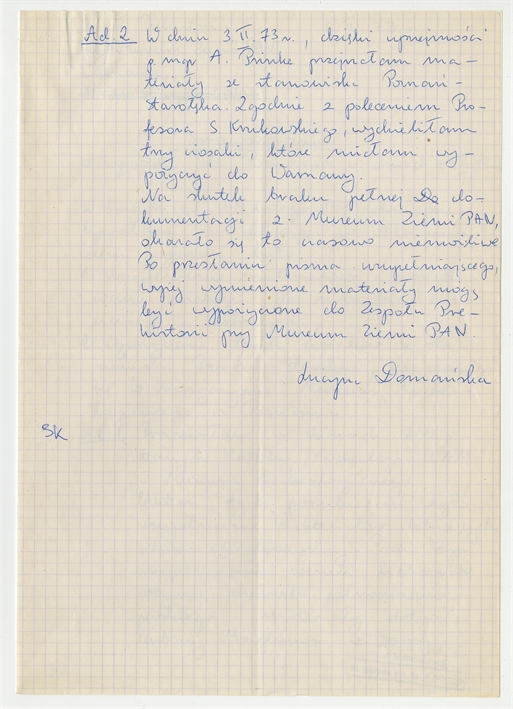 Ad. 2 W dniu 3 II. 73 r., dzięki uprzejmości
p. mgr A. Prinke przejrzałam ma-
teriały ze stanowiska Poznań-
Starołęka. Zgodnie z poleceniem Pro-
fesora S Krukowskiego, wydzieliłam
trzy ciosaki, które miałam wy-
pożyczyć do Warszawy.
Na skutek braku pełnej Do do-
kumentacji z Museum Ziemi PAN,
okazało się to czasowo niemożliwe
Po przesłaniu pisma uzupełniającego,
wyżej wymienione materiały mogą
być wypożyczone do Zespołu Pre-
historii przy Museum Ziemi PAN.
Lucyna Domańska
SK